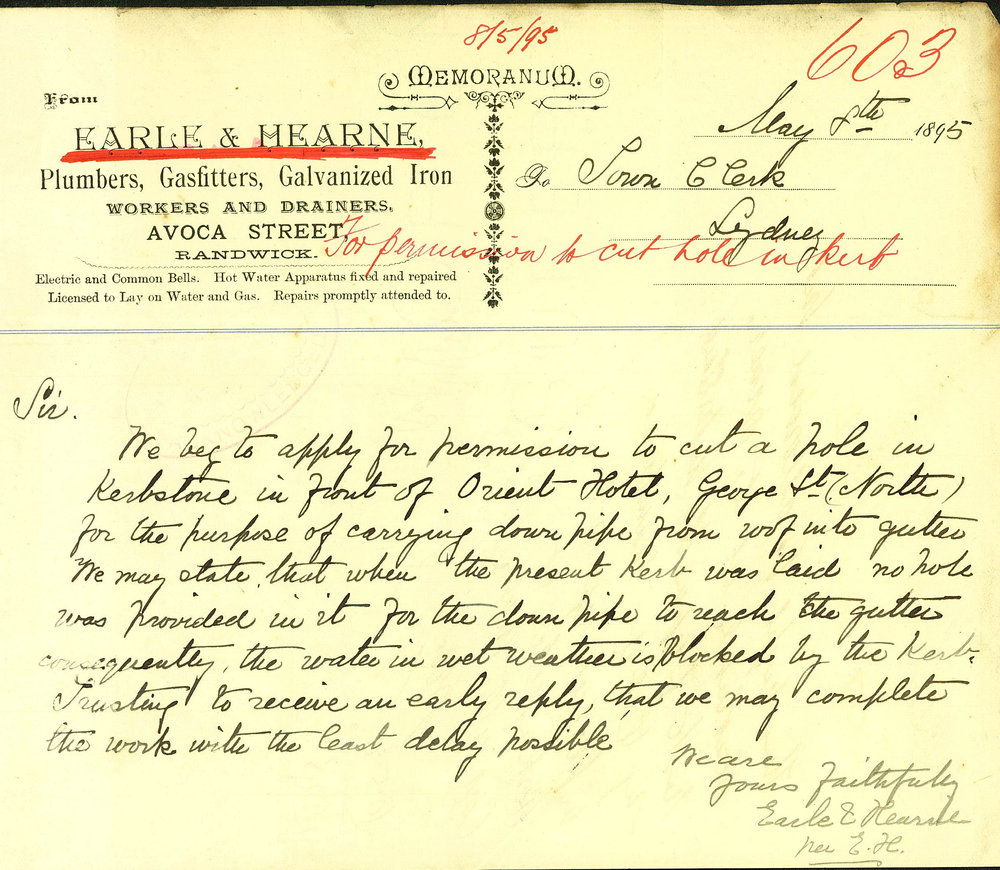 8/5/95
603
MEMORANUM.
From
EARLE & HEARNE,
Plumbers, Gasfitters, Galvanized Iron
WORKERS AND DRAINERS,
AVOCA STREET,
RANDWICK.
Electric and Common Bells. Hot Water Apparatus fixed and repaired
Licensed to Lay on Water and Gas. Repairs promptly attended to.
May 8th 1895
To Town Clerk
Sydney
For permission to cut hole in kerb
Sir.
We beg to apply for permission to cut a hole in
Kerbstone in front of Orient Hotel, George St. (North)
for the purpose of carrying down pipe from roof into gutter
We may state, that when the present Kerb was laid no hole
was provided in it for the down pipe to reach the gutter
consequently, the water in wet weather is blocked by the Kerb.
Trusting to receive an early reply, that we may complete
the work with the least delay possible
We are
Yours Faithfully
Earle & Hearne
per E. H.